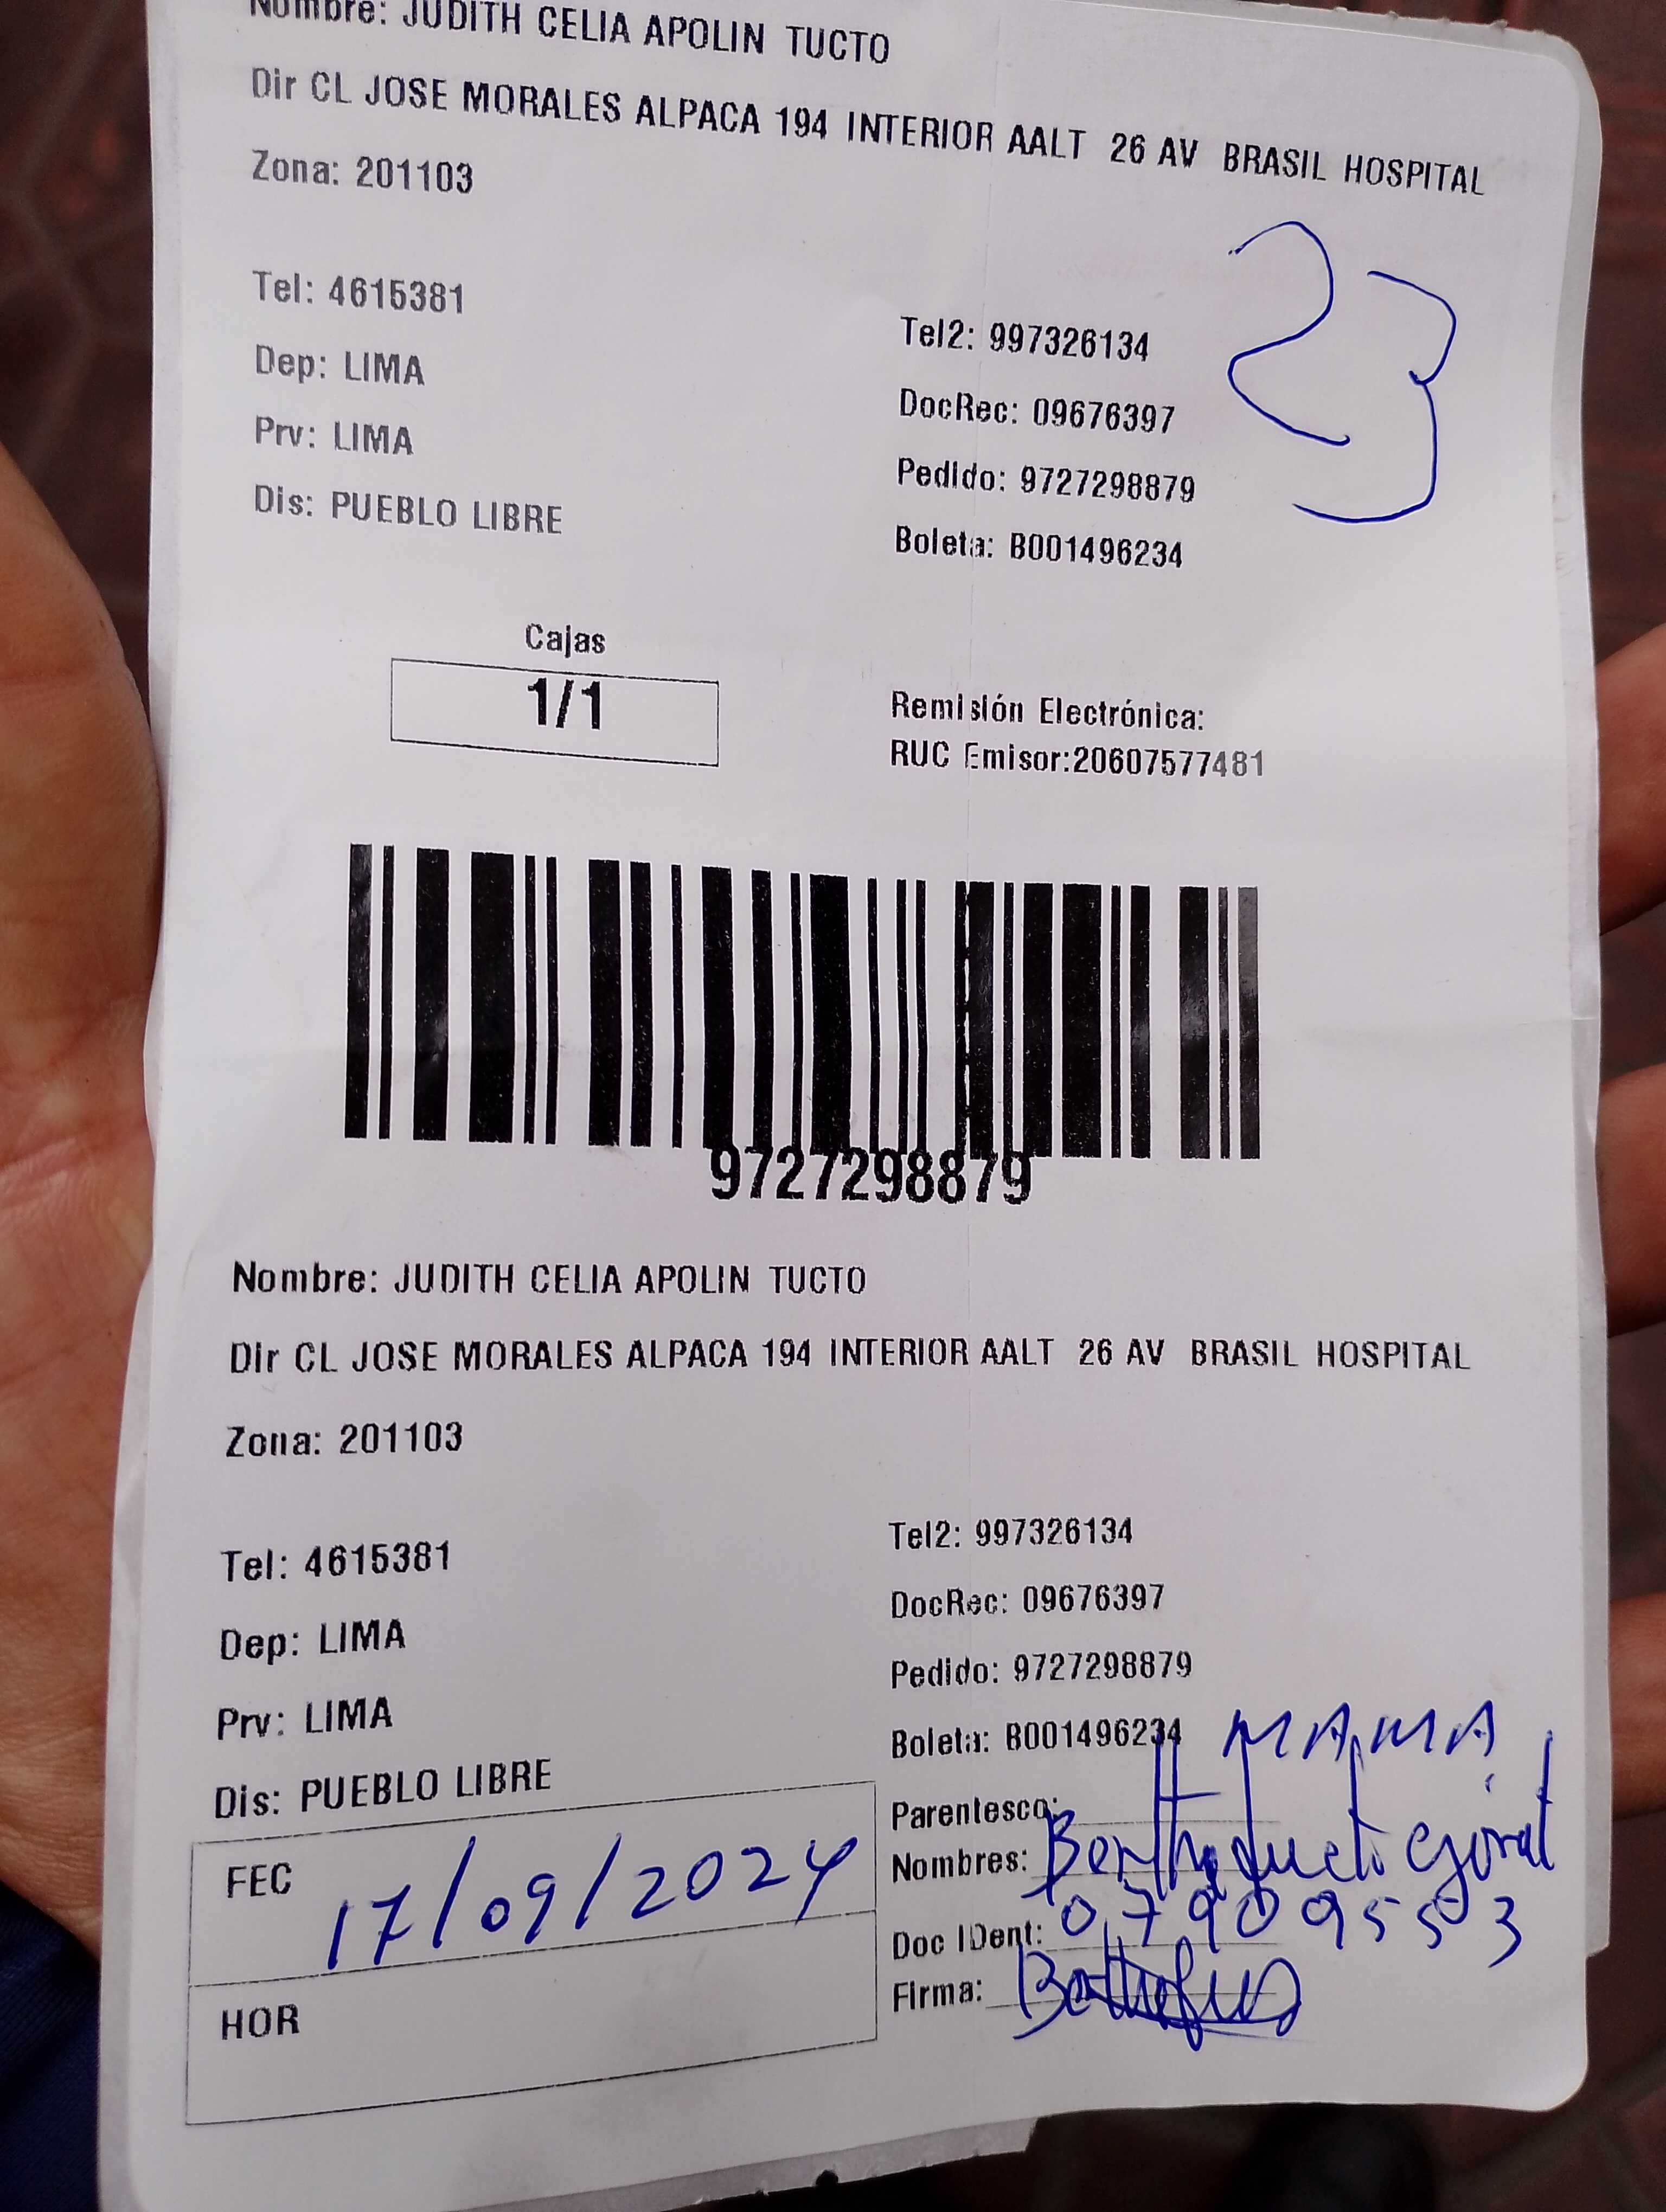 Nombre: JUDITH CELIA APOLIN TUCTO
Dir CL JOSE MORALES ALPACA 194 INTERIOR AALT 26 AV BRASIL HOSPITAL
Zona: 201103
23
Tel: 4615381
Tel2: 997326134
Dep: LIMA
DocRec: 09676397
Prv: LIMA
Pedido: 9727298879
Dis: PUEBLO LIBRE
Boleta: B001496234
Cajas
1/1
Remisión Electrónica:
RUC Emisor:20607577481
9727298879
Nombre: JUDITH CELIA APOLIN TUCTO
Dir CL JOSE MORALES ALPACA 194 INTERIOR AALT 26 AV BRASIL HOSPITAL
Zona: 201103
Tel: 4615381
Tel2: 997326134
Dep: LIMA
DocRec: 09676397
Prv: LIMA
Pedido: 9727298879
Dis: PUEBLO LIBRE
Boleta: B001496234
Parentesco: MAMÁ
Nombres:
Doc IDent: 07909553
Firma:
FEC 17/09/2024
HOR